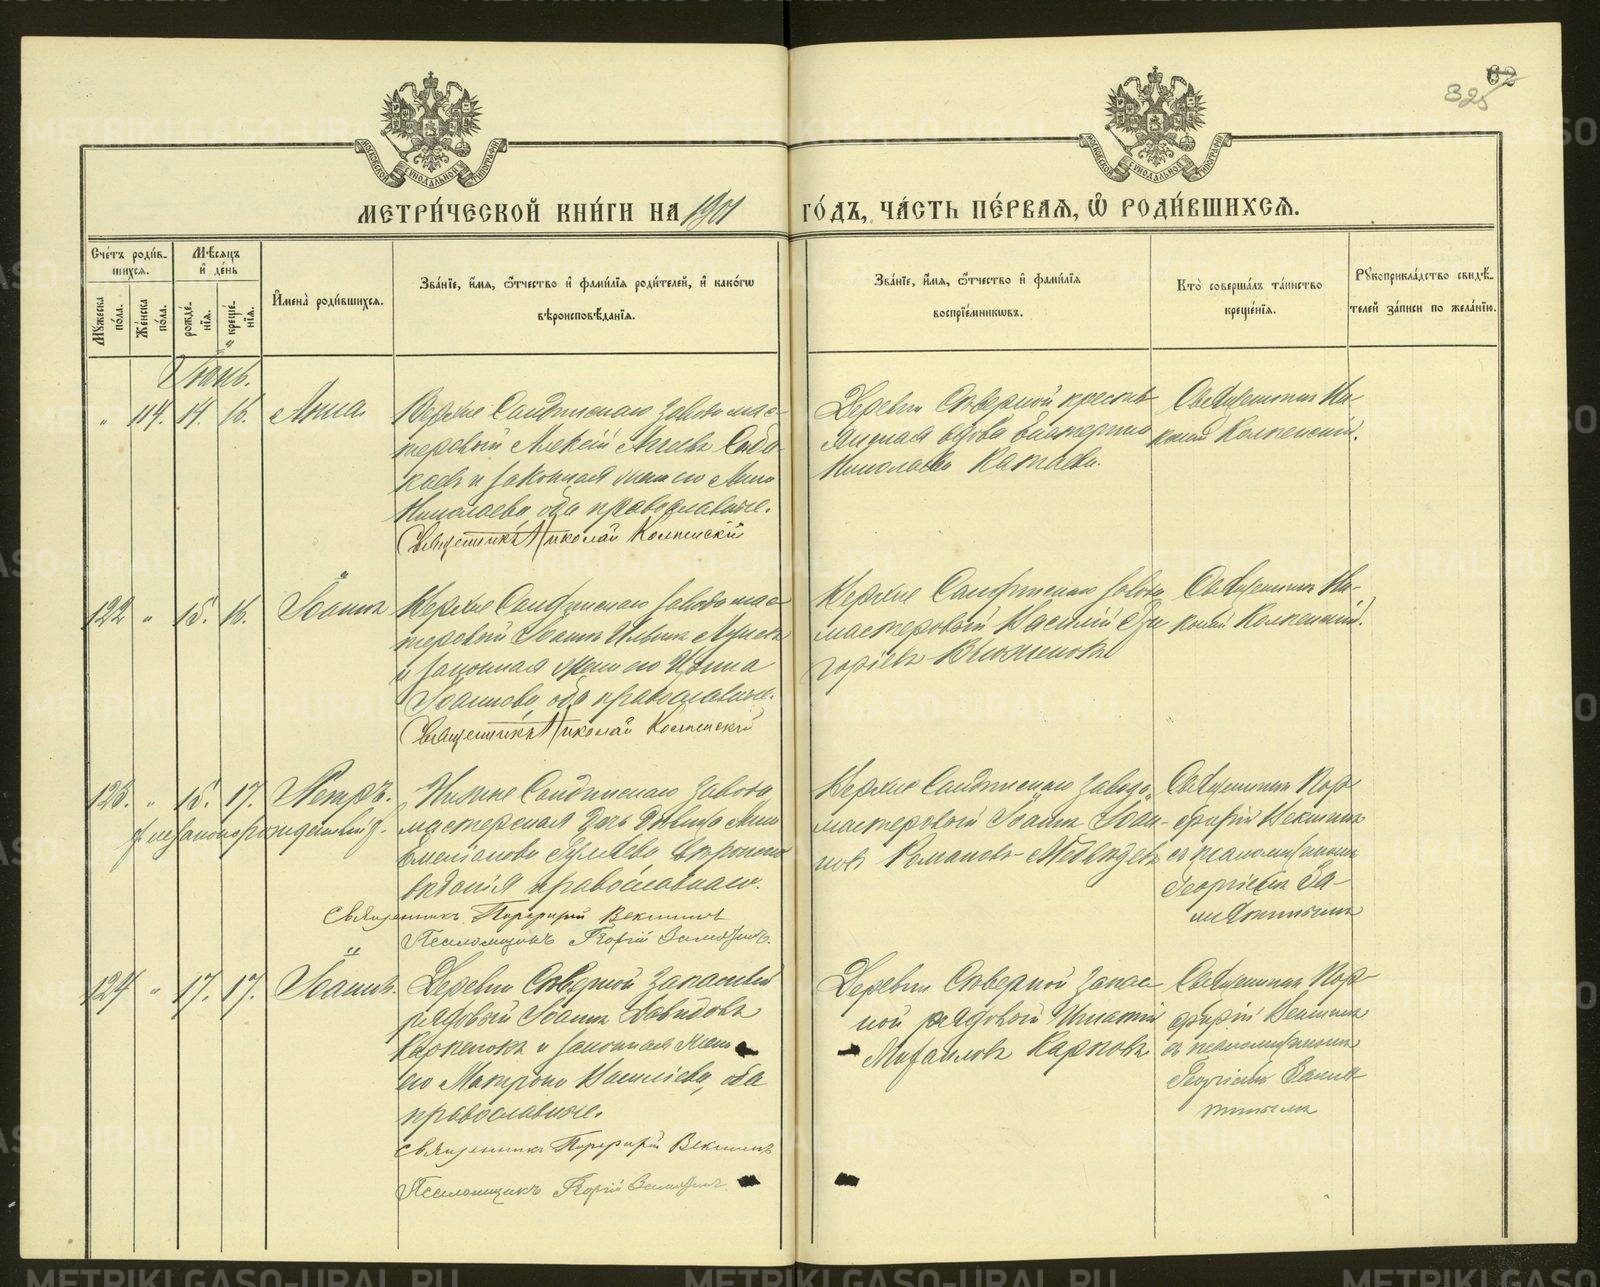 82
325
МОСКОВСКОЙ СѴНОДАЛЬНОЙ ТИПОГРАФІИ
МОСКОВСКОЙ СѴНОДАЛЬНОЙ ТИПОГРАФІИ
МЕТРИ́ЧЕСКОЙ КНИ́ГИ НА 1901 ГО́ДЪ, ЧА́СТЬ ПЕ́РВАѦ, Ѡ҆ РОДИ́ВШИХСѦ.
Сче́тъ роди́в-
шихсѧ.
Мꙋ́жеска по́ла.
Же́нска по́ла.
Мѣ́сѧцъ
и҆ де́нь
рожде́нїѧ.
креще́нїѧ.
И҆мена̀ роди́вшихсѧ.
Зва́нїе, и҆́мѧ, ѻ҆́тчество и҆ фами́лїѧ роди́телей, и҆ како́гѡ
вѣроисповѣ́данїѧ.
Зва́нїе, и҆́мѧ, ѻ҆́тчество и҆ фами́лїѧ
воспрїе́мникѡвъ.
Кто̀ соверша́лъ та́инство
креще́нїѧ.
Рꙋкоприкла́дство свидѣ́-
телей за́писи по жела́нїю.
Іюнь.
„ 114. 14. 16. Анна.
Верхне Салдинскаго завода мас-
теровый Алексій
и законная жена его Анна
Николаева, оба православные.
Священникъ Николай Колпенскій
Деревни Северной крестья-
янская вдова Екатерина
Николаева Катаева.
Священникъ Ни-
колай Колпенскій.
122 „ 15. 16. Іоаннъ
Верхне Салдинскаго завода мас-
теровый Іоаннъ Ильинъ
и законная жена его Ирина
Іоаннова, оба православные.
Священникъ Николай Колпенскій
Верхне Салдинскаго завода
мастеровый Василій Гри-
горіевъ
Священникъ Ни-
колай Колпенскій.
123. „ 15. 17. Петръ.
(незаконорожденный).
Нижне Салдинскаго завода
мастерская дочь девица Анна
Емеліанова Гуляева, вероиспо-
веданія православнаго.
Священникъ Порфирій Векшинъ
Псаломщикъ Георгій Замятинъ.
Верхне Салдинскаго завода
мастеровый Іоаннъ Іоан-
новъ Романовъ Медведевъ
Священникъ Пор-
фирій Векшинъ
съ псаломщикомъ
Георгіемъ За-
мятинымъ
124 „ 17. 17. Іоаннъ.
Деревни Северной запасный
рядовый Іоаннъ Давидовъ
и законная жена
его Матрона Василіева, оба
православные.
Священникъ Порфирій Векшинъ
Псаломщикъ Георгій Замятинъ.
Деревни Северной запас-
ной рядовый Игнатій
Михаиловъ Карповъ
Священникъ Пор-
фирій Векшинъ
съ псаломщикомъ
Георгіемъ Замя-
тинымъ
METRIKI.GASO-URAL.RU